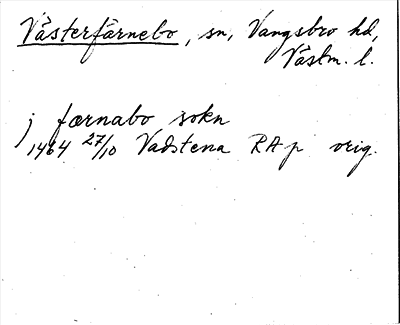 Västerfärnebo, sn, Vangsbro hd,
Västm. l.
j færnabo sokn
1464 27/10 Vadstena RAp orig.